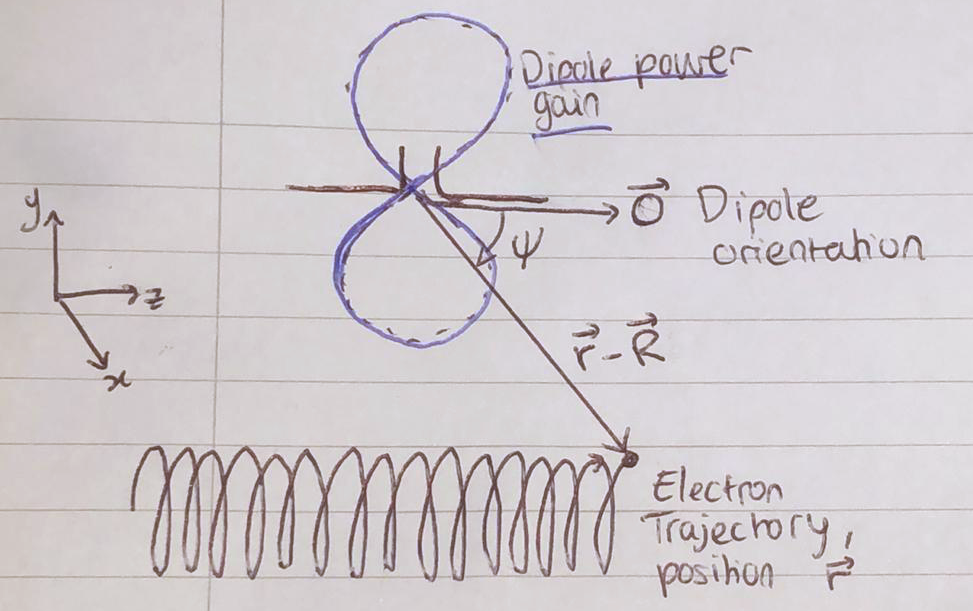 Dipole power
gain
y
z
x
O⃗ Dipole
orientation
ψ
r⃗ - R⃗
Electron
Trajectory,
position r⃗